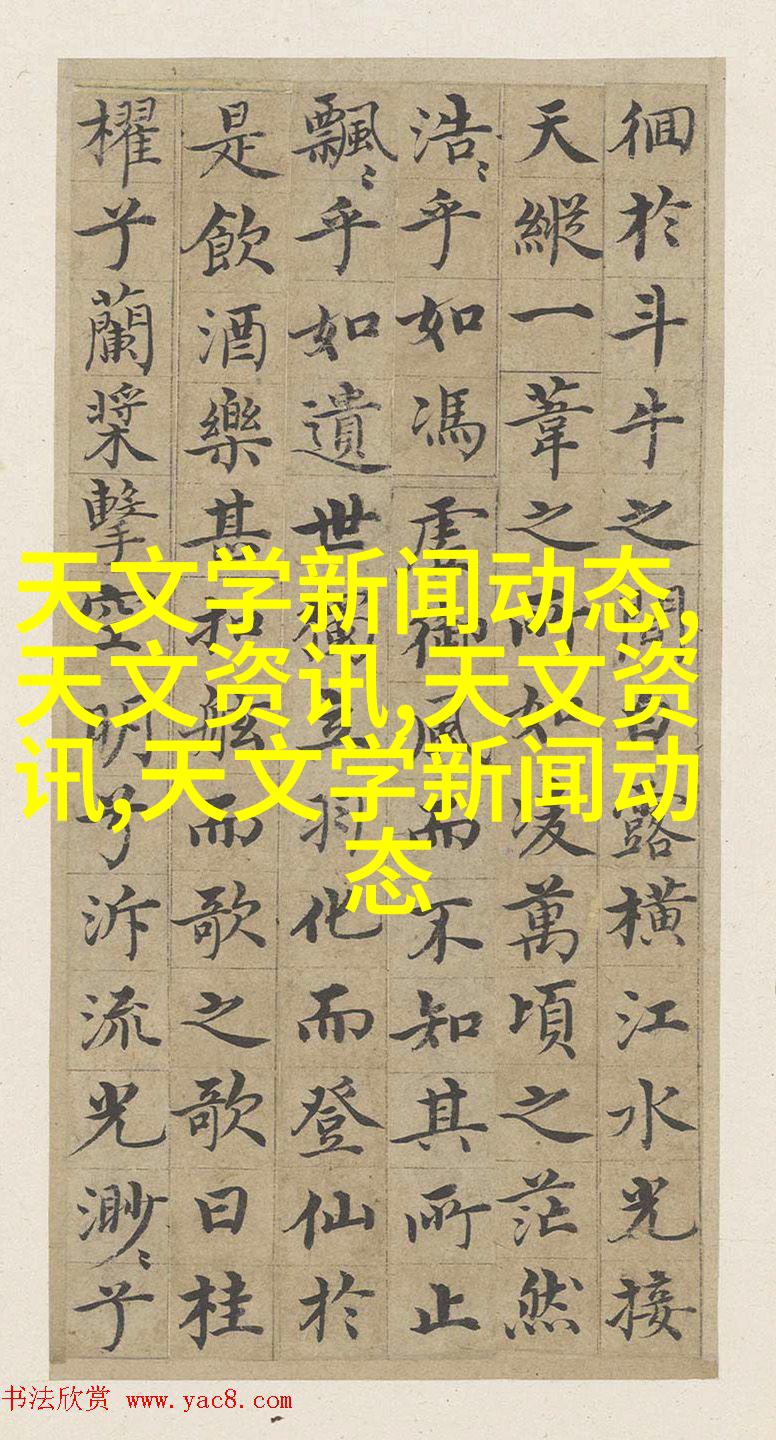 徊於斗牛之間白露橫江水光接
天縱一葦之所如凌萬頃之茫然
浩〻乎如馮虛御風而不知其所止
飄〻乎如遺世獨立羽化而登仙於
是飲酒樂甚扣舷而歌之歌曰桂
櫂兮蘭槳擊空明兮泝流光渺〻兮
天文学新闻动态,
天文资讯,天文资
讯,天文学新闻动
态
书法欣赏 www.yac8.com